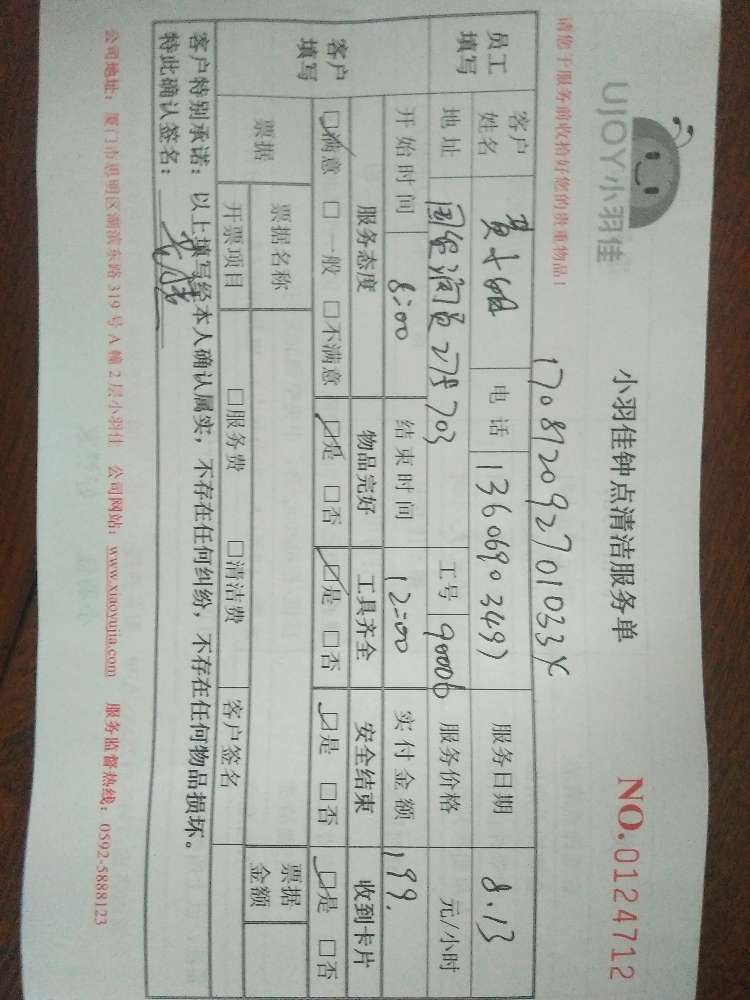 UJOY小羽佳
小羽佳钟点清洁服务单
NO.0124712
请您于服务前收拾好您的贵重物品！
170812092701033X
员工填写
客户姓名 电话 13606903497 服务日期 8.13
地址 国金润园 275 703 工号 90006 服务价格 元/小时
开始时间 8:00 结束时间 12:00 实付金额 199.
客户填写
服务态度 物品完好 工具齐全 安全结束 收到卡片
☑满意 □一般 □不满意 ☑是 □否 ☑是 □否 ☑是 □否 ☑是 □否
票据
票据名称 票据金额
开票项目 □服务费 □清洁费 客户签名
客户特别承诺：以上填写经本人确认属实，不存在任何纠纷，不存在任何物品损坏。
特此确认签名：
公司地址：厦门市思明区湖滨东路 319 号 A 幢 2 层小羽佳 公司网站：www.xiaoyujia.com 服务监督热线：0592-5888123